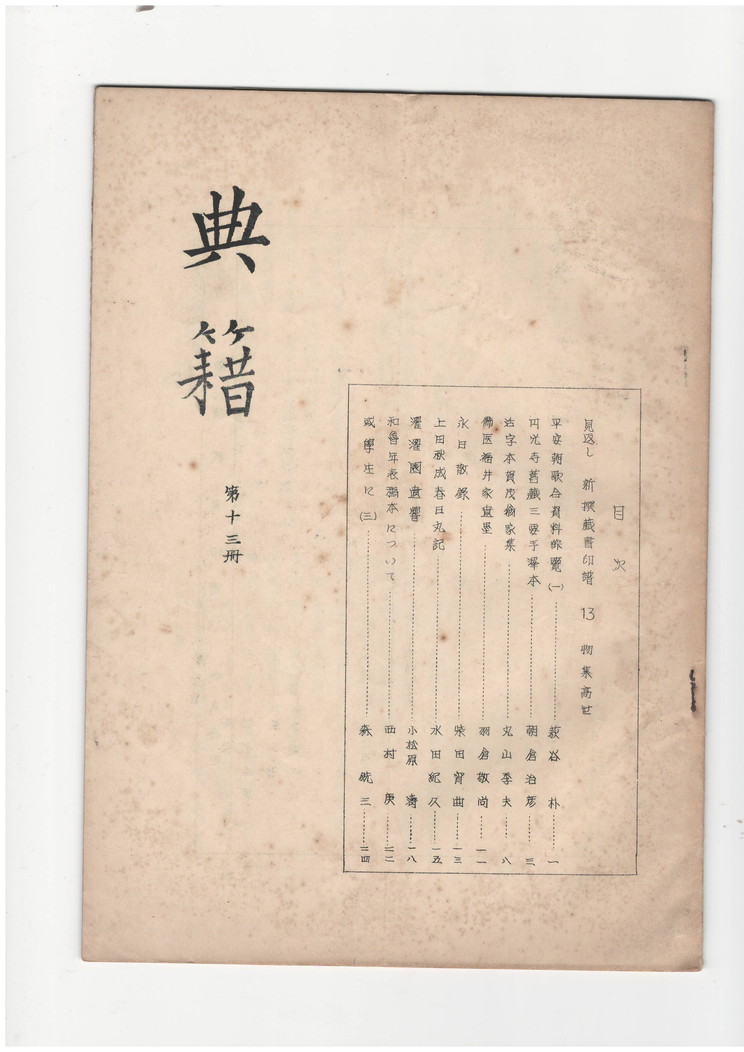 典籍
第十三冊
目次
見返し 新撰蔵書印譜 13 物集高世
平安朝歌合資料綜覧(一)………萩谷 朴……一
円光寺舊蔵三要手澤本………朝倉治彦……三
活字本賀茂翁家集………丸山季夫……八
儒医福井家遺墨………羽倉敬尚……一一
永日散録………柴田宵曲……一三
上田秋成春日丸記………水田紀久……一五
濯濯園遺響………小松原 濤……一八
和學年表稿本について………西村 庚……二二
或學生に(三)………森 銑三……二四